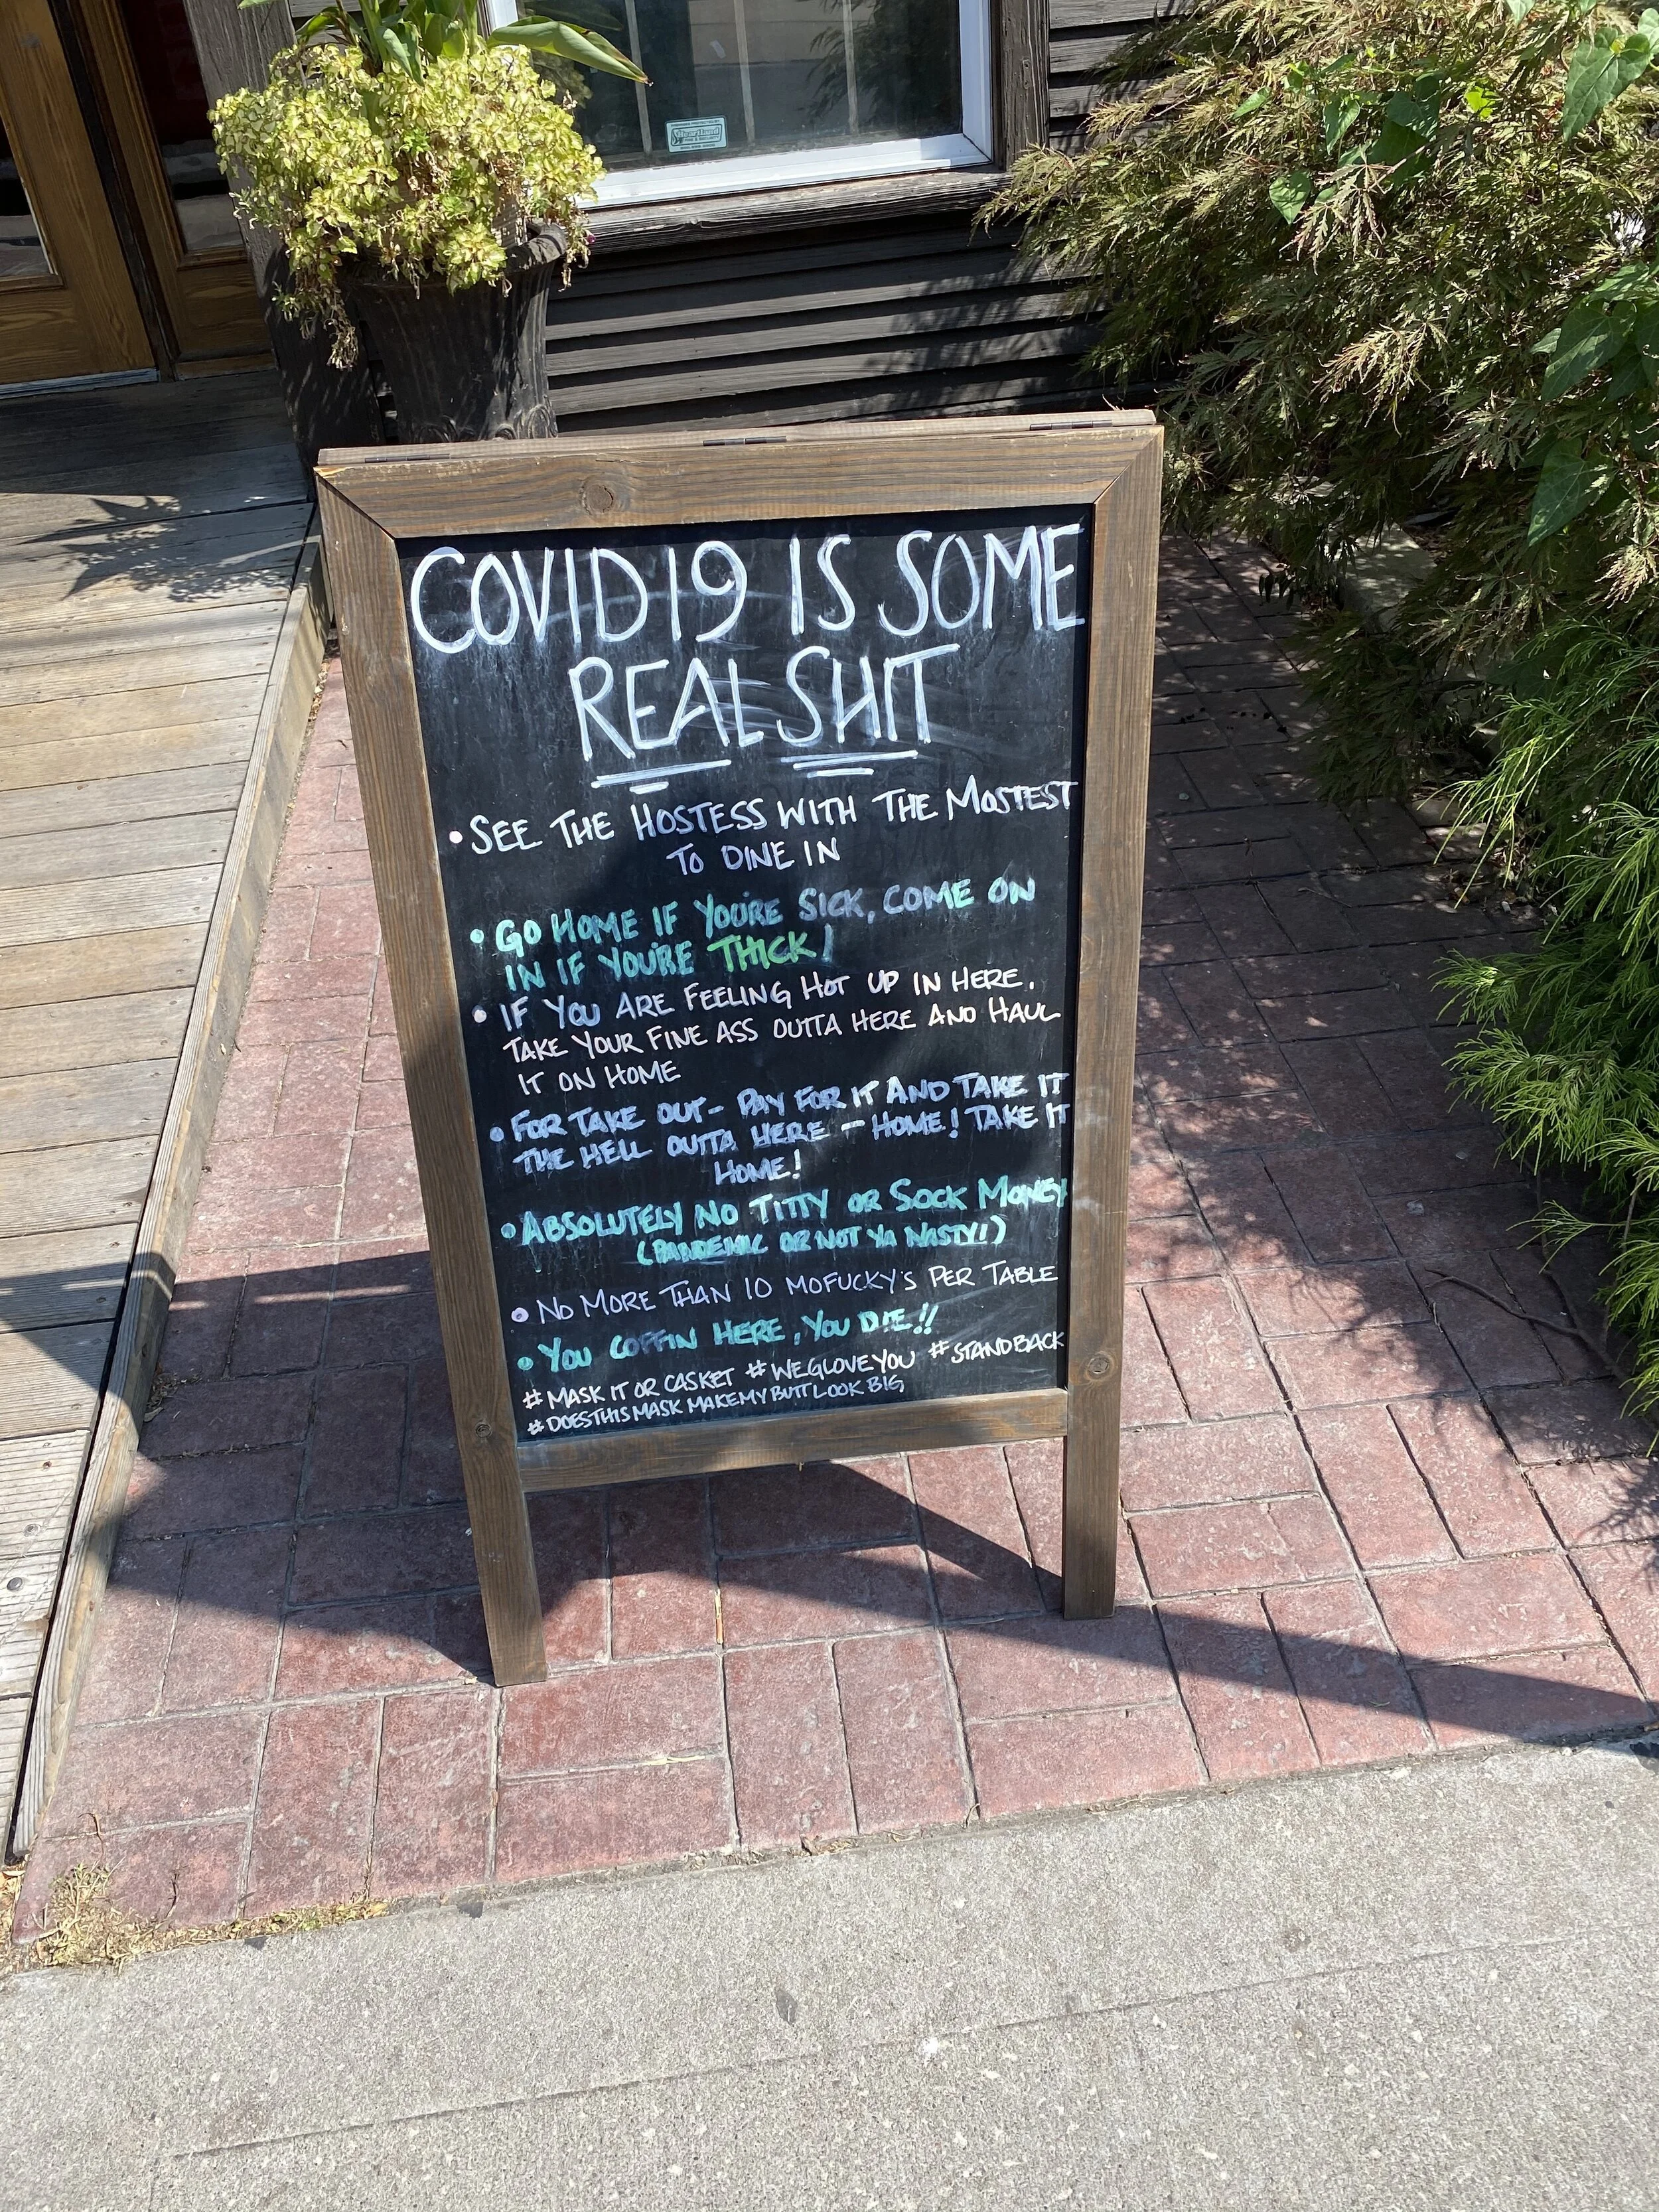 Heartland
COVID19 IS SOME
REAL SHIT
• SEE THE HOSTESS WITH THE MOSTEST
TO DINE IN
• GO HOME IF YOU'RE SICK, COME ON
IN IF YOU'RE THICK!
• IF YOU ARE FEELING HOT UP IN HERE,
TAKE YOUR FINE ASS OUTTA HERE AND HAUL
IT ON HOME
• FOR TAKE OUT - PAY FOR IT AND TAKE IT
THE HELL OUTTA HERE - HOME! TAKE IT
HOME!
• ABSOLUTELY NO TITTY OR SOCK MONEY
(PANDEMIC OR NOT YA NASTY!)
• NO MORE THAN 10 MOFUCKY'S PER TABLE
• YOU COFFIN HERE, YOU DIE!!
# MASK IT OR CASKET # WEGLOVEYOU # STANDBACK
# DOESTHISMASK MAKEMYBUTTLOOK BIG